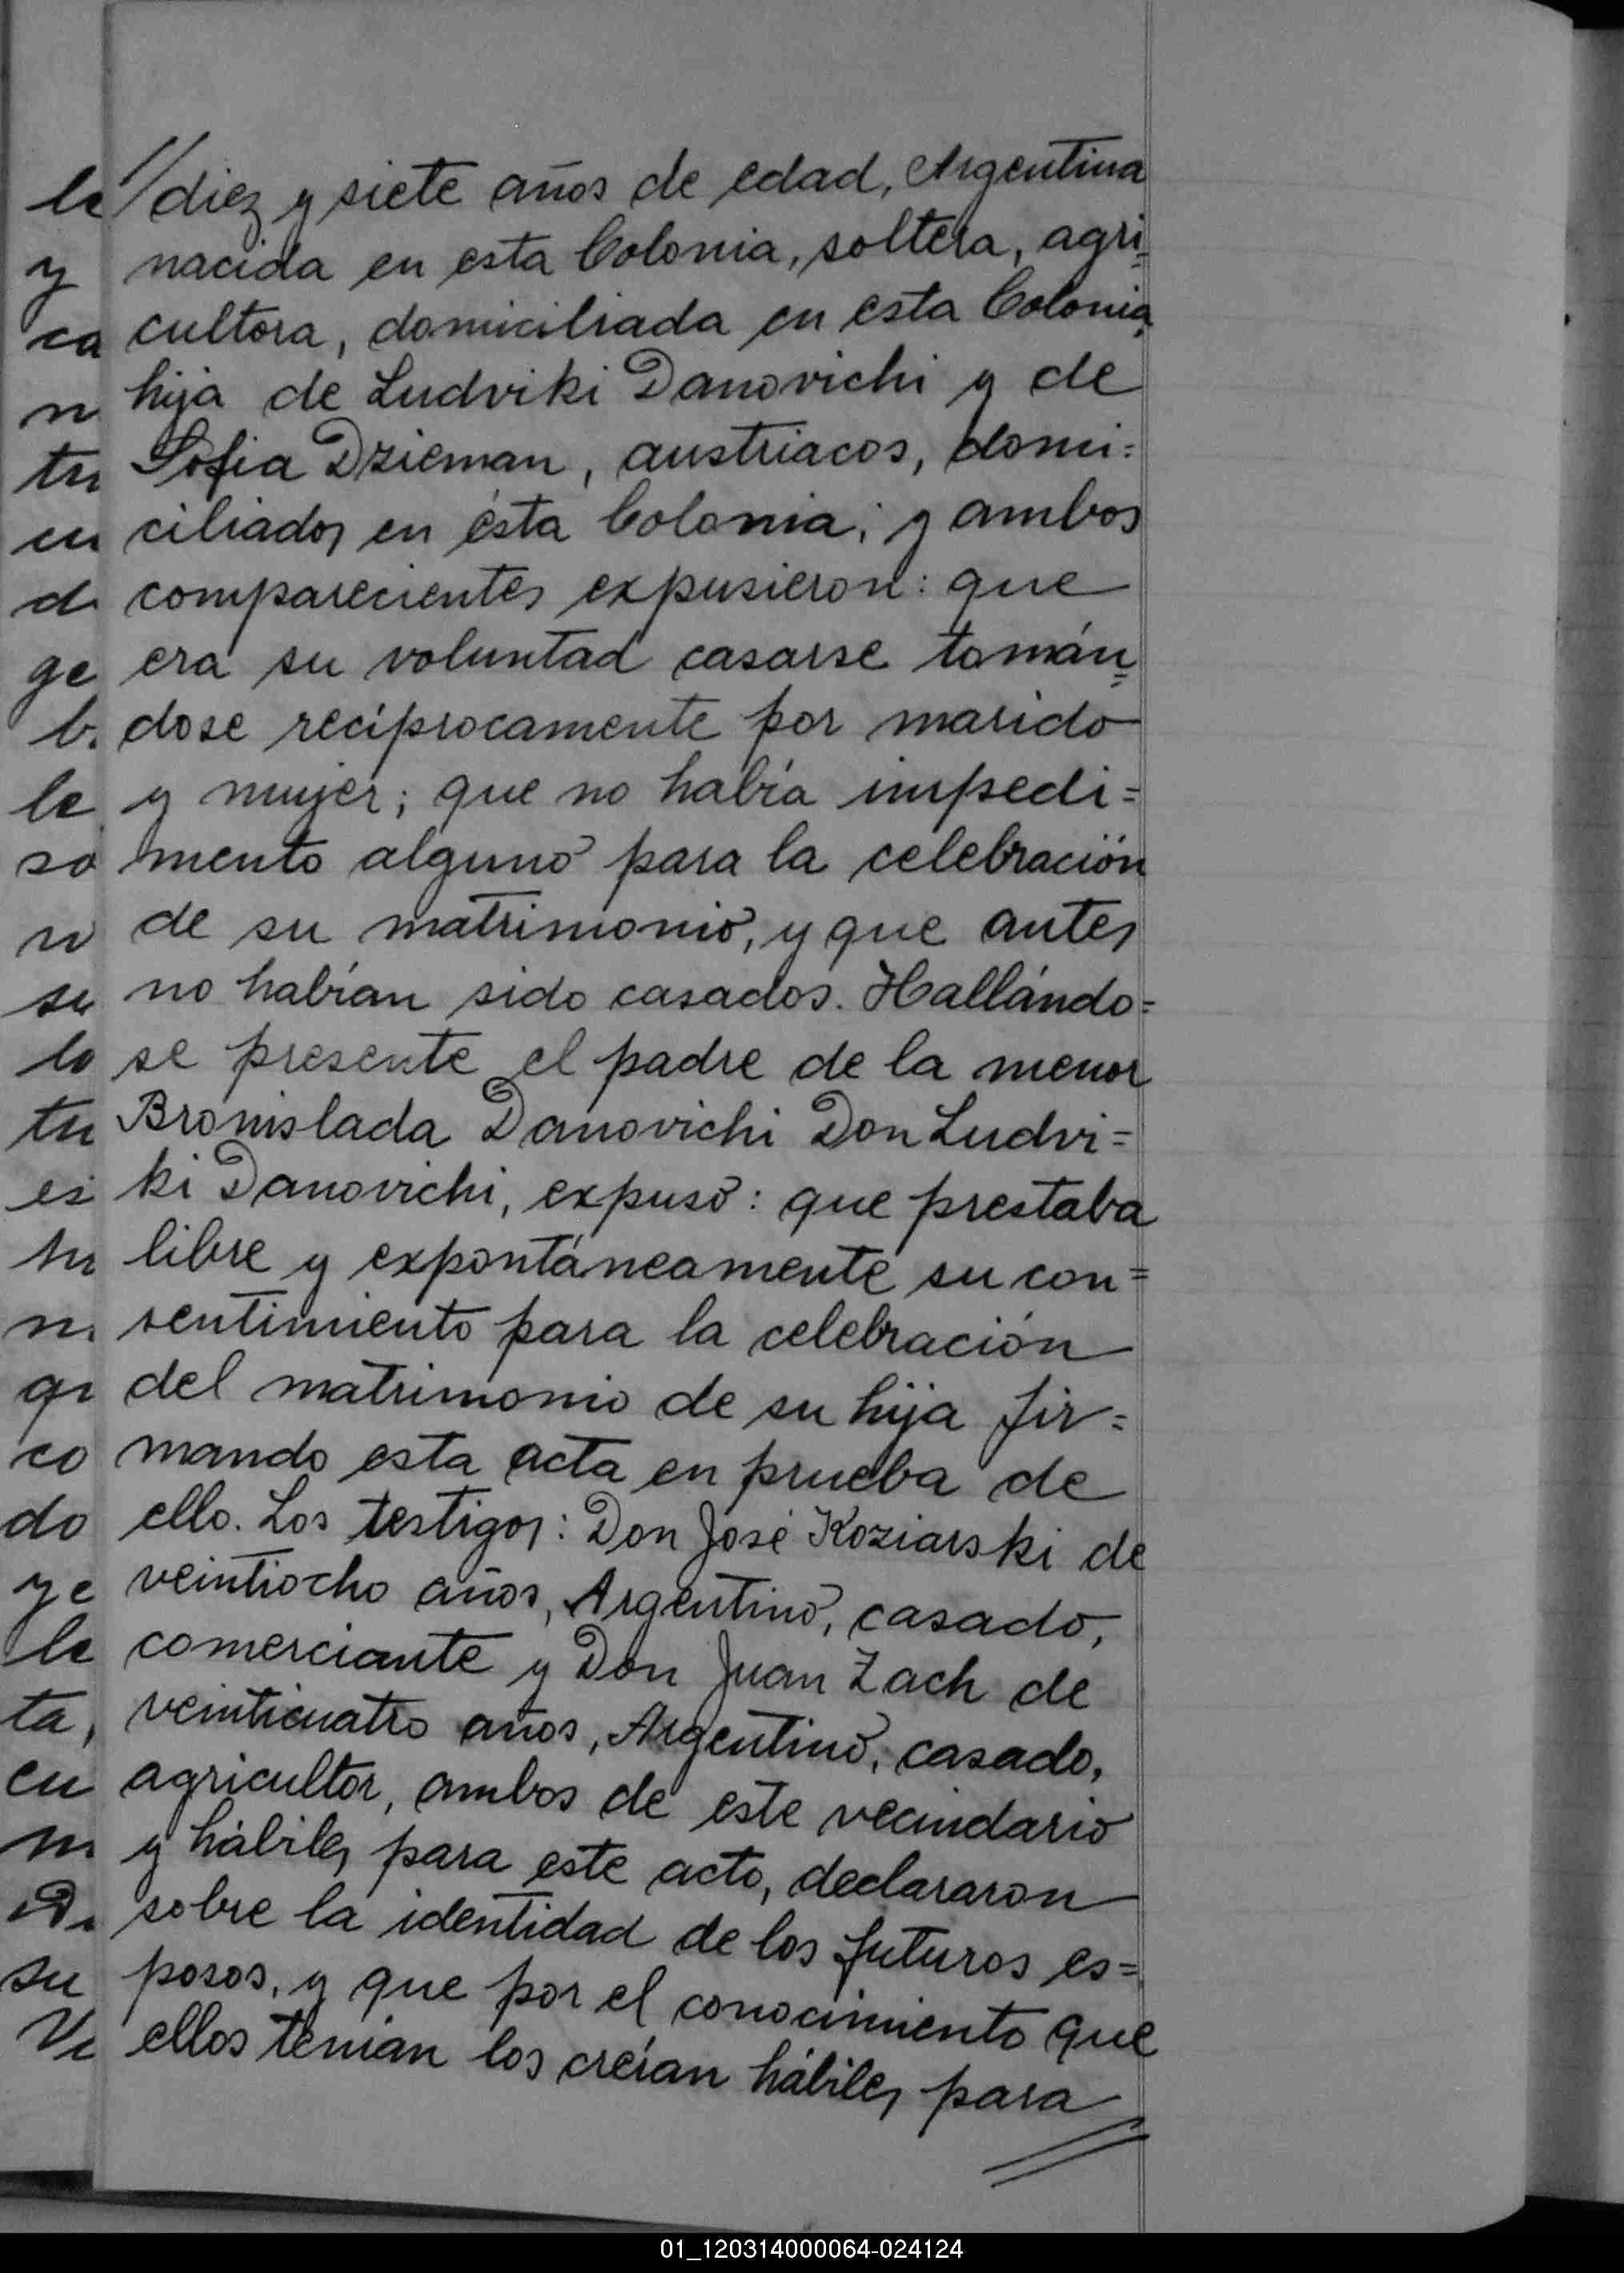 //diez y siete años de edad, Argentina
nacida en esta Colonia, soltera, agri=
cultora, domiciliada en esta Colonia,
hija de Ludviki Danovichi y de
Sofia Dzieman, austriacos, domi=
ciliados en ésta Colonia; y ambos
comparecientes expusieron: que
era su voluntad casarse tomán=
dose recíprocamente por marido
y mujer; que no había impedi=
mento alguno para la celebración
de su matrimonio, y que antes
no habían sido casados. Hallándo=
se presente el padre de la menor
Bronislada Danovichi Don Ludvi=
ki Danovichi, expuso: que prestaba
libre y expontáneamente su con=
sentimiento para la celebración
del matrimonio de su hija fir=
mando esta acta en prueba de
ello. Los testigos: Don José Koziarski de
veintiocho años, Argentino, casado,
comerciante y Don Juan Zach de
veinticuatro años, Argentino, casado,
agricultor, ambos de este vecindario
y hábiles para este acto, declararon
sobre la identidad de los futuros es=
posos, y que por el conocimiento que
ellos tenían los creían hábiles para
//
01_120314000064-024124